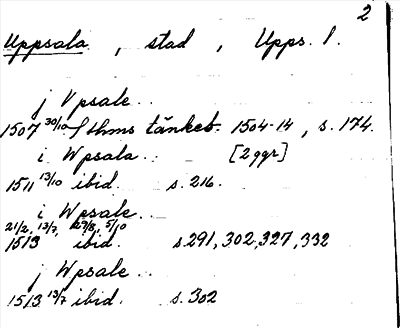 2
Uppsala , stad , Upps. l.
j Vpsale..
1507 30/10 Sthms tänkeb. 1504-14, s. 174.
i Wpsala.. [2 ggr]
1511 13/10 ibid. s. 216.
i Wpsale..
21/2, 13/7, 29/8, 5/10
1513 ibid. s. 291, 302, 327, 332
j Wpsale..
1513 13/7 ibid. s. 302